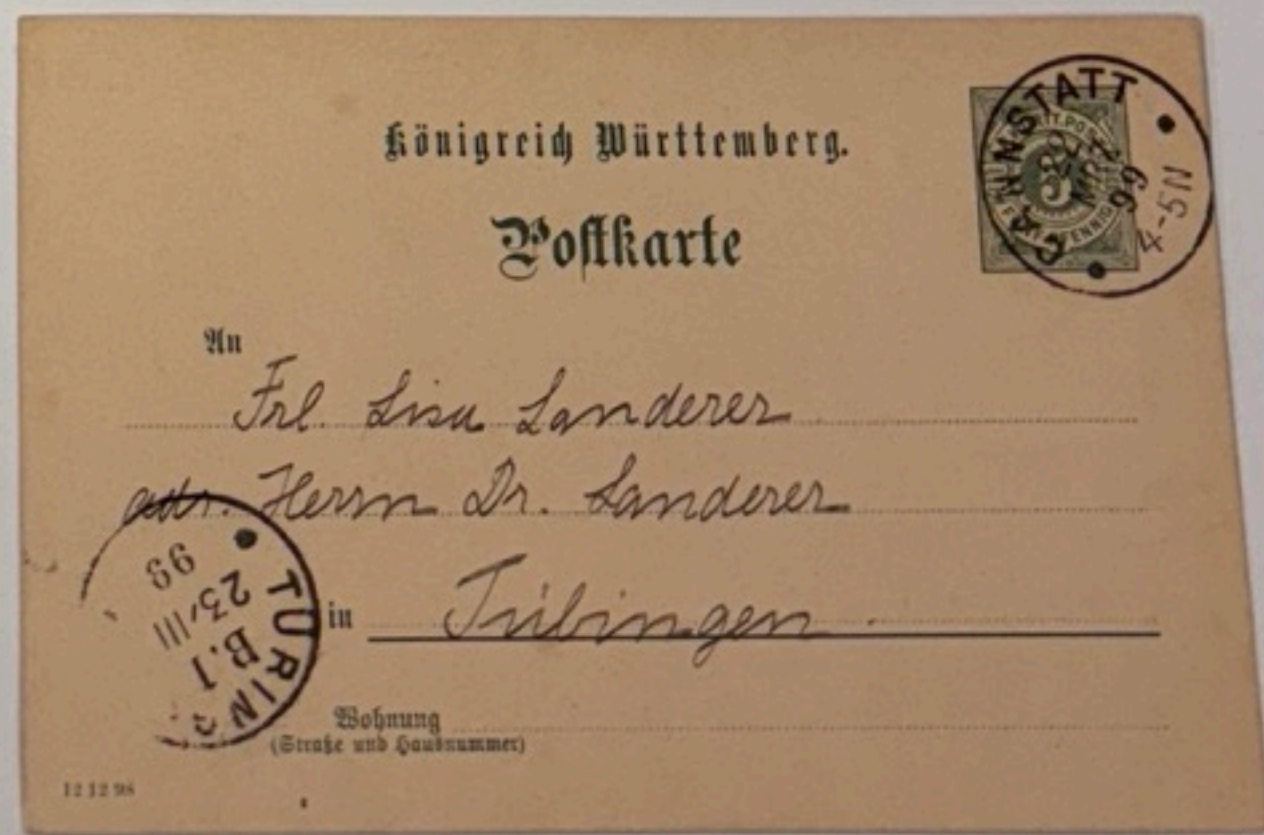 Königreich Württemberg.
Postkarte
CANNSTATT
MRZ
99
4-5N
5
FÜNF PFENNIG
An
Frl. Lisa Landerer
adr. Herrn Dr. Landerer
in Tübingen
99
23/III
B.1
Wohnung
(Straße und Hausnummer)
12 12 98